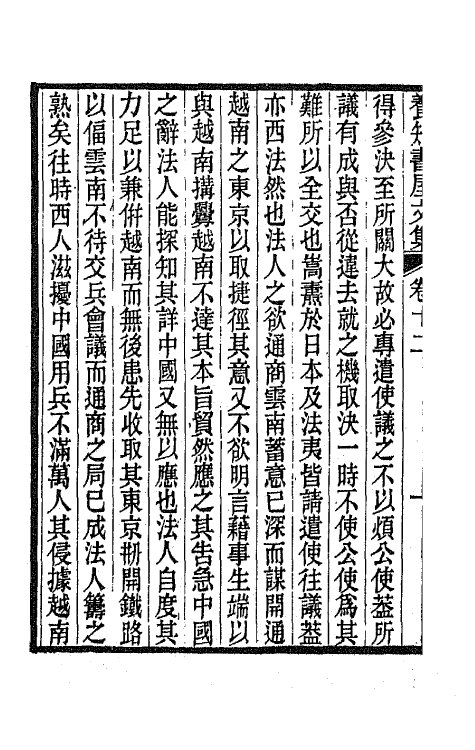 養知書屋文集　卷十二　一
得參決至所關大故必專遣使議之不以煩公使葢所
議有成與否從違去就之機取決一時不使公使爲其
難所以全交也嵩燾於日本及法夷皆請遣使往議葢
亦西法然也法人之欲通商雲南蓄意已深而謀開通
越南之東京以取捷徑其意又不欲明言藉事生端以
與越南搆釁越南不達其本旨貿然應之其告急中國
之辭法人能探知其詳中國又無以應也法人自度其
力足以兼倂越南而無後患先收取其東京刱開鐵路
以偪雲南不待交兵會議而通商之局已成法人籌之
熟矣往時西人滋擾中國用兵不滿萬人其侵據越南